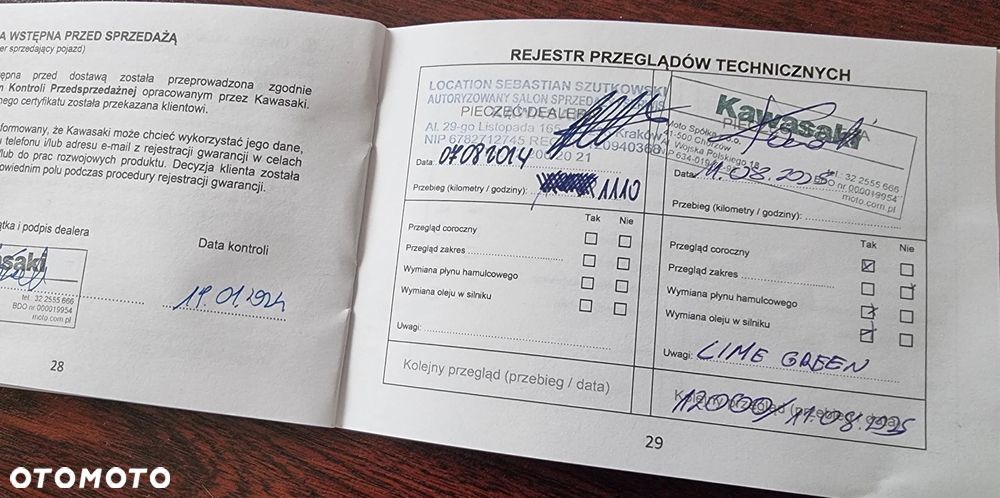 A WSTĘPNA PRZED SPRZEDAŻĄ
er sprzedający pojazd)
ępna przed dostawą została przeprowadzona zgodnie
n Kontroli Przedsprzedażnej opracowanym przez Kawasaki.
nego certyfikatu została przekazana klientowi.
formowany, że Kawasaki może chcieć wykorzystać jego dane,
u telefonu i/lub adresu e-mail z rejestracji gwarancji w celach
/lub do prac rozwojowych produktu. Decyzja klienta została
powiednim polu podczas procedury rejestracji gwarancji.
ątka i podpis dealera
Data kontroli
tel. 32 2555 666
BDO nr 000019954
moto.com.pl
19.01.2024
28
REJESTR PRZEGLĄDÓW TECHNICZNYCH
LOCATION SEBASTIAN SZUTKOWSKI
AUTORYZOWANY SALON
PIECZĘĆ DEALERA
Al. 29-go Listopada Kraków
Data: 07082014
Przebieg (kilometry / godziny): 1110
Tak Nie
Przegląd coroczny
Przegląd zakres
Wymiana płynu hamulcowego
Wymiana oleju w silniku
Uwagi:
Kolejny przegląd (przebieg / data)
Kawasaki
Moto Spółka z o.o.
41-500 Chorzów
Wojska Polskiego 18
tel. 32 2555 666
BDO nr 000019954
moto.com.pl
Data:
Przebieg (kilometry / godziny):
Tak Nie
Przegląd coroczny
Przegląd zakres
Wymiana płynu hamulcowego
Wymiana oleju w silniku
Uwagi: LIME GREEN
Kolejny przegląd (przebieg / data)
12000/11.08.2025
29
OTOMOTO